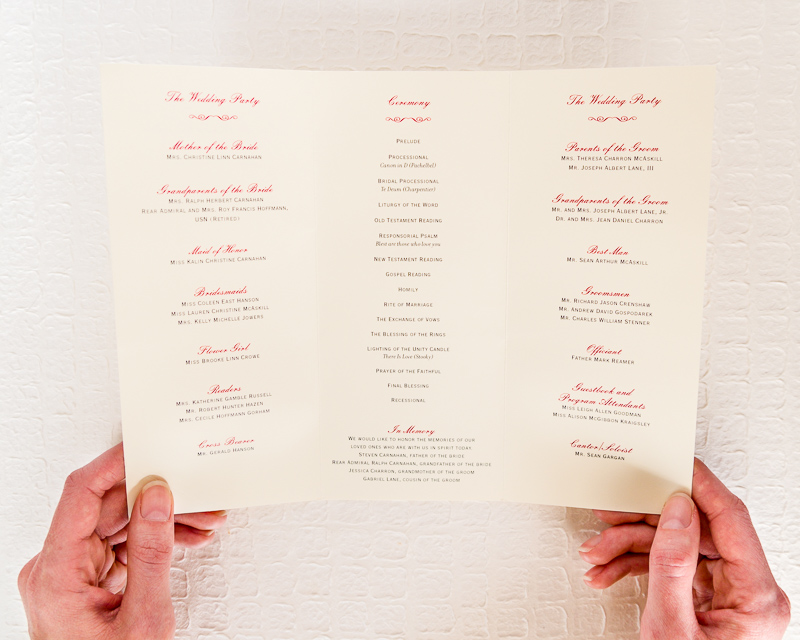 The Wedding Party
Mother of the Bride
Mrs. Christine Linn Carnahan
Grandparents of the Bride
Mrs. Ralph Herbert Carnahan
Rear Admiral and Mrs. Roy Francis Hoffmann,
USN (Retired)
Maid of Honor
Miss Kalin Christine Carnahan
Bridesmaids
Miss Coleen East Hanson
Miss Lauren Christine McAskill
Mrs. Kelly Michelle Jowers
Flower Girl
Miss Brooke Linn Crowe
Readers
Mrs. Katherine Gamble Russell
Mr. Robert Hunter Hazen
Mrs. Cecile Hoffmann Gorham
Cross Bearer
Mr. Gerald Hanson
Ceremony
Prelude
Processional
Canon in D (Pachelbel)
Bridal Processional
Te Deum (Charpentier)
Liturgy of the Word
Old Testament Reading
Responsorial Psalm
Blest are those who love you
New Testament Reading
Gospel Reading
Homily
Rite of Marriage
The Exchange of Vows
The Blessing of the Rings
Lighting of the Unity Candle
There Is Love (Stookey)
Prayer of the Faithful
Final Blessing
Recessional
In Memory
We would like to honor the memories of our
loved ones who are with us in spirit today.
Steven Carnahan, father of the bride
Rear Admiral Ralph Carnahan, grandfather of the bride
Jessica Charron, grandmother of the groom
Gabriel Lane, cousin of the groom
The Wedding Party
Parents of the Groom
Mrs. Theresa Charron McAskill
Mr. Joseph Albert Lane, III
Grandparents of the Groom
Mr. and Mrs. Joseph Albert Lane, Jr.
Dr. and Mrs. Jean Daniel Charron
Best Man
Mr. Sean Arthur McAskill
Groomsmen
Mr. Richard Jason Crenshaw
Mr. Andrew David Gospodarek
Mr. Charles William Stenner
Officiant
Father Mark Beamer
Guestbook and
Program Attendants
Miss Leigh Allen Goodman
Miss Alison McGibbon Kraigsley
Cantor\Soloist
Mr. Sean Gargan